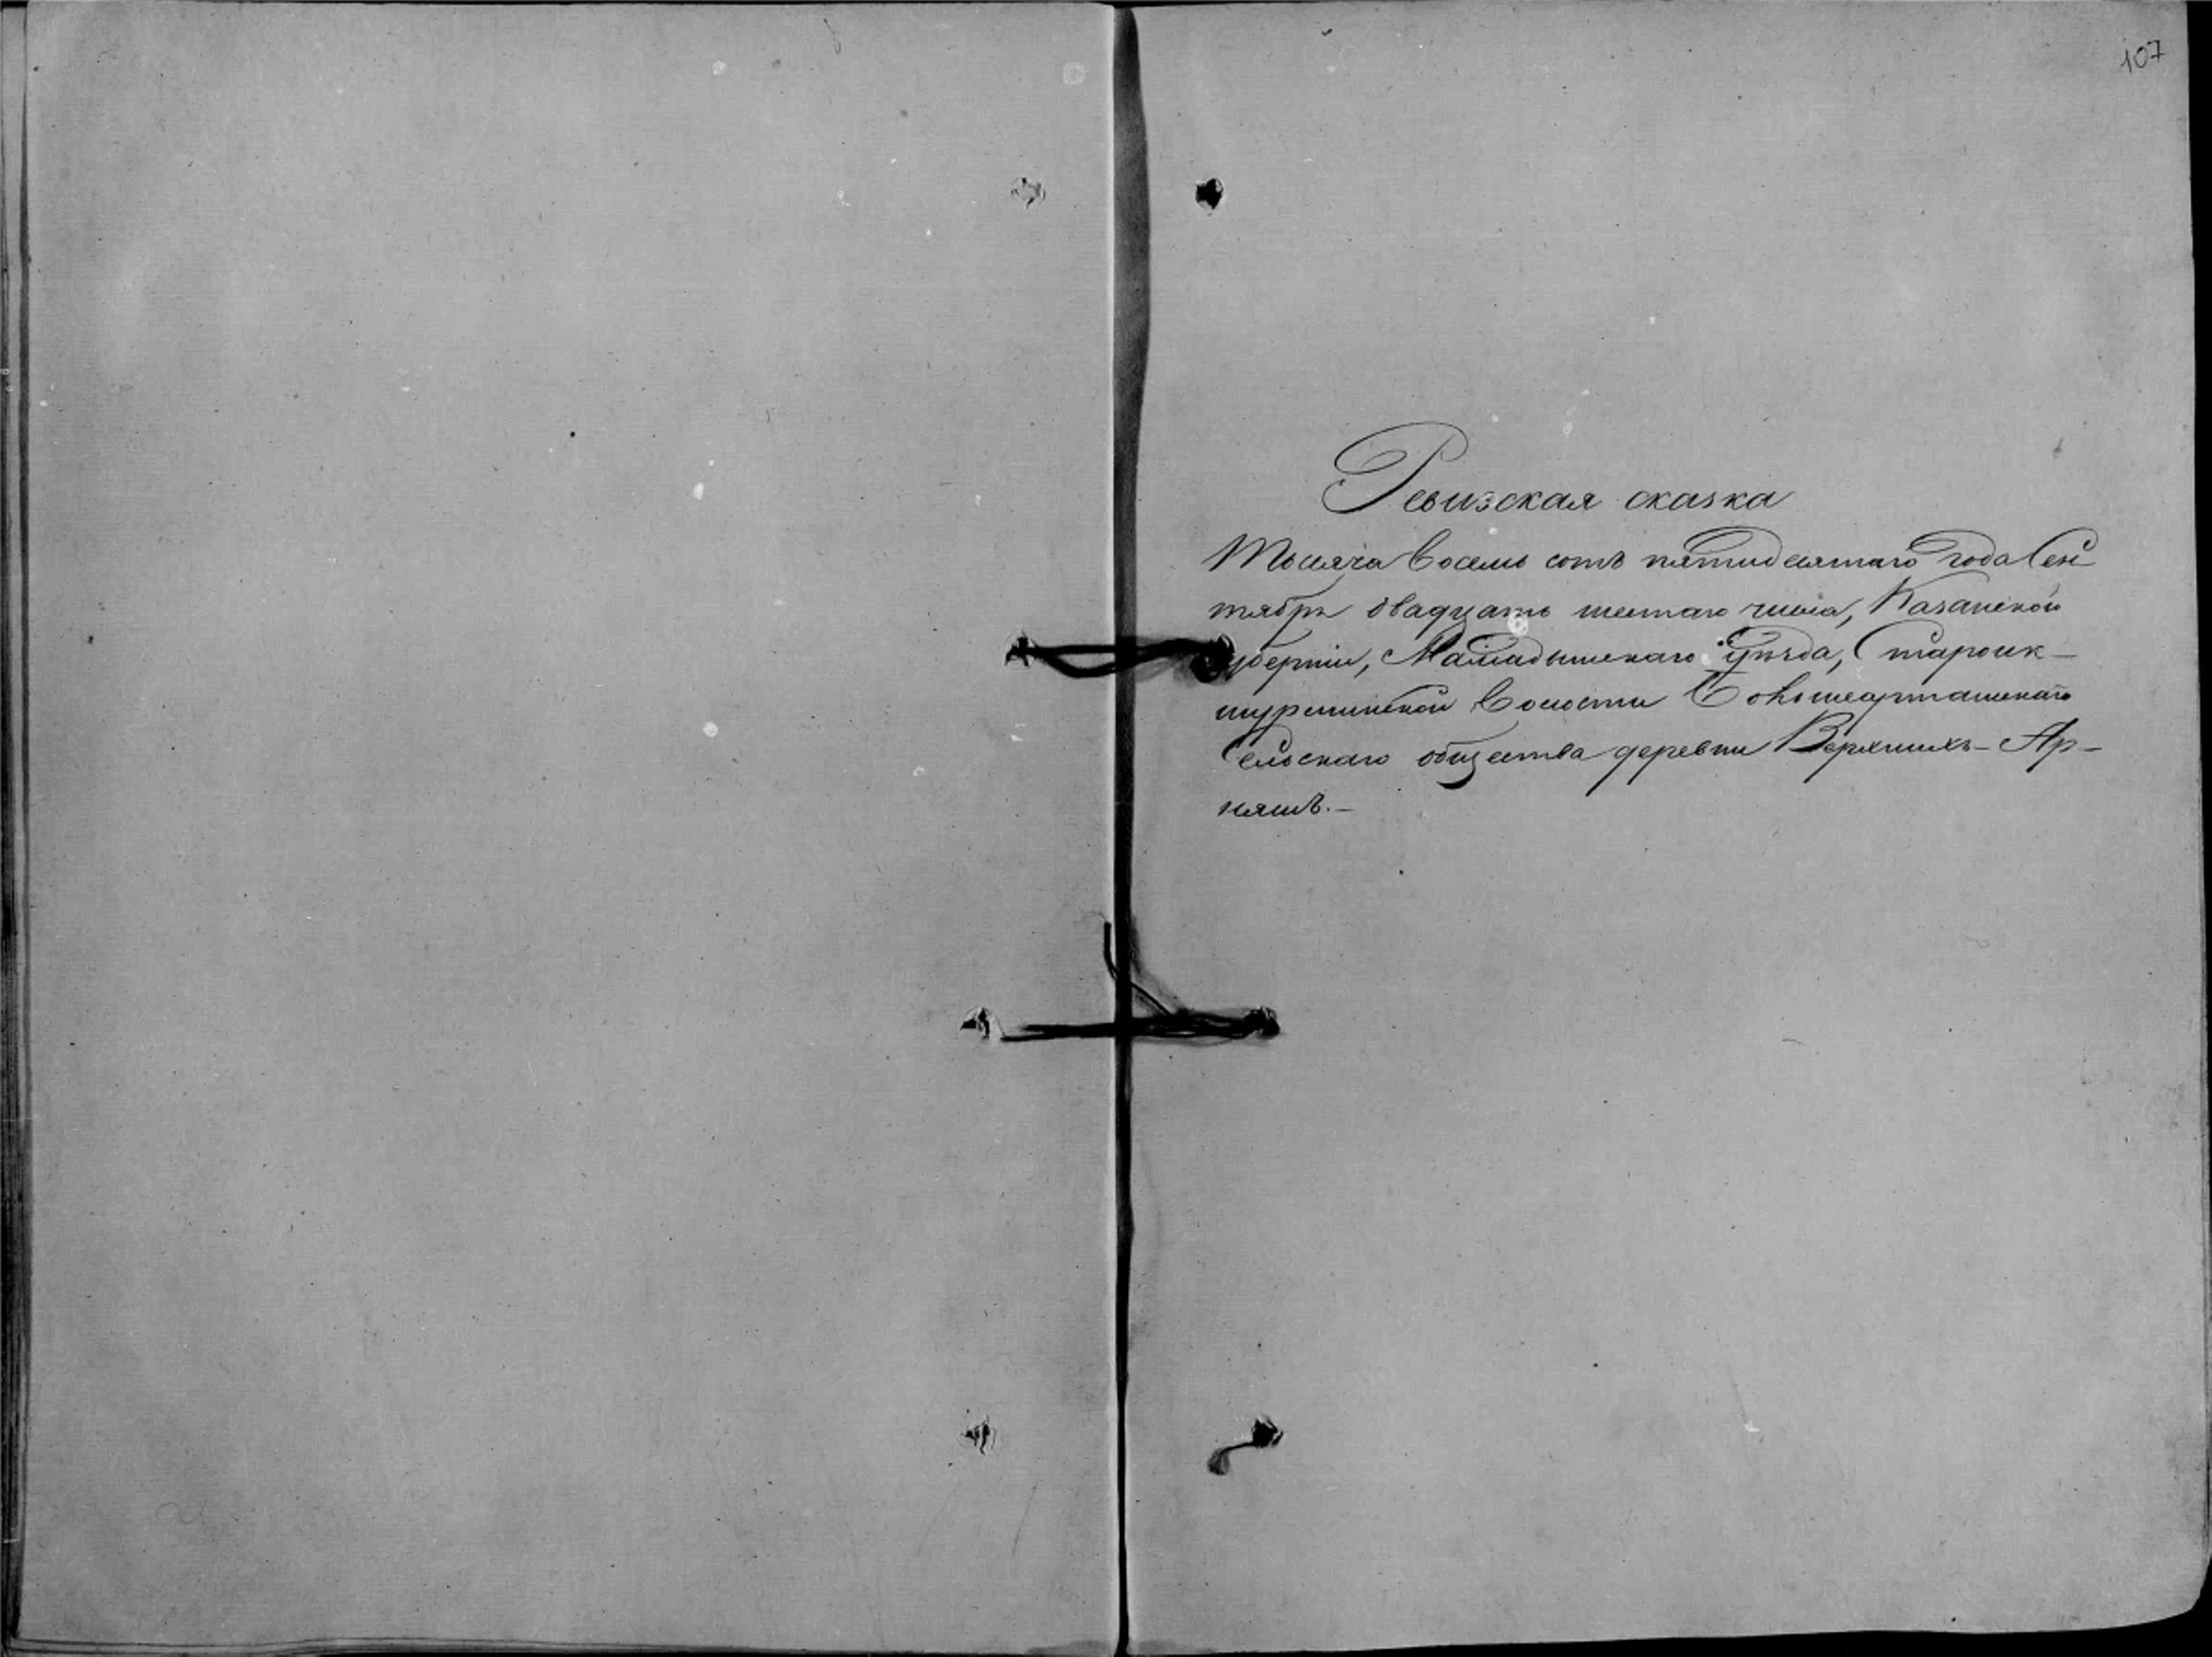 107
Ревизская сказка
Тысяча восемь сотъ пятидесятаго года Сен-
тября двадцать шестаго числа, Казанской
Губерніи, Мамадышскаго уѣзда, Староик-
шурминской Волости
Сельскаго общества деревни Верхнихъ-Ар-
няшъ.-